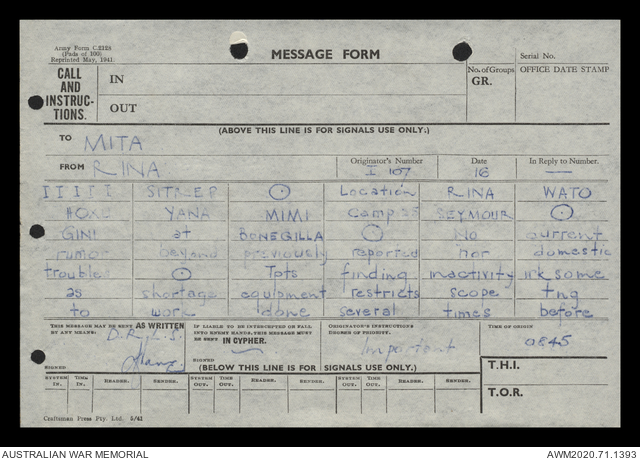 Army Form C.2128
(Pads of 100)
Reprinted May, 1941.
MESSAGE FORM
Serial No.
CALL AND INSTRUC-TIONS.
IN
OUT
No. of Groups
GR.
OFFICE DATE STAMP
(ABOVE THIS LINE IS FOR SIGNALS USE ONLY.)
TO MITA
FROM RINA
Originator's Number
I 107
Date
16
In Reply to Number.
—
I I I I I SITREP ⊙ Location RINA WATO
HOXU YANA MIMI Camp SEYMOUR ⊙
GINI at BONEGILLA ⊙ No current
rumor beyond previously reported nor domestic
troubles ⊙ Tpts finding inactivity irksome
as shortage equipment restricts scope tng
to work done several times before
THIS MESSAGE MAY BE SENT AS WRITTEN BY ANY MEANS.
D.R.L.S.
SIGNED
IF LIABLE TO BE INTERCEPTED OR FALL INTO ENEMY HANDS, THIS MESSAGE MUST BE SENT IN CYPHER.
SIGNED
ORIGINATOR'S INSTRUCTIONS
DEGREE OF PRIORITY.
Important
TIME OF ORIGIN
0845
(BELOW THIS LINE IS FOR SIGNALS USE ONLY.)
T.H.I.
T.O.R.
SYSTEM IN. TIME IN. READER. SENDER. SYSTEM OUT. TIME OUT. READER. SENDER. SYSTEM OUT. TIME OUT. READER. SENDER.
Craftsman Press Pty. Ltd. 5/42
AUSTRALIAN WAR MEMORIAL
AWM2020.71.1393